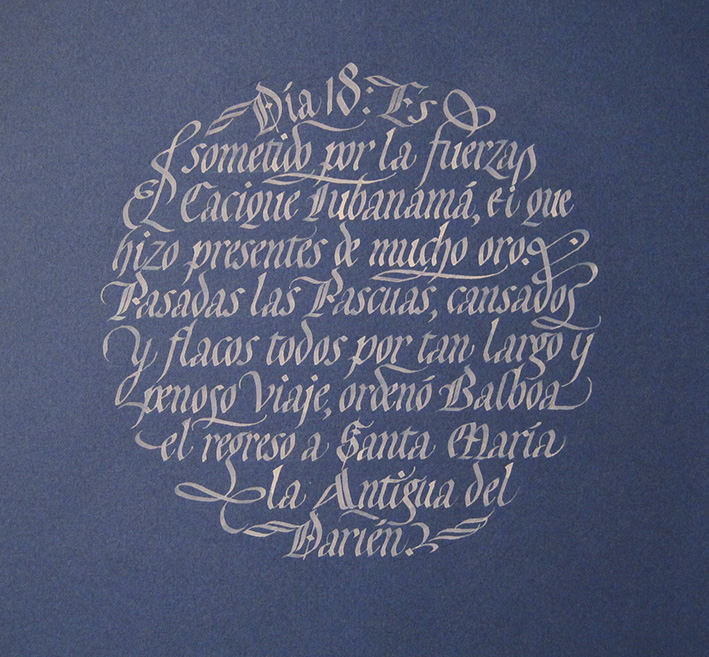 Día 18: Es
sometido por la fuerza
El Cacique Tubanamá, el que
hizo presentes de mucho oro.
Pasadas las Pascuas, cansados
y flacos todos por tan largo y
penoso viaje, ordenó Balboa
el regreso a Santa María
la Antigua del
Darién.